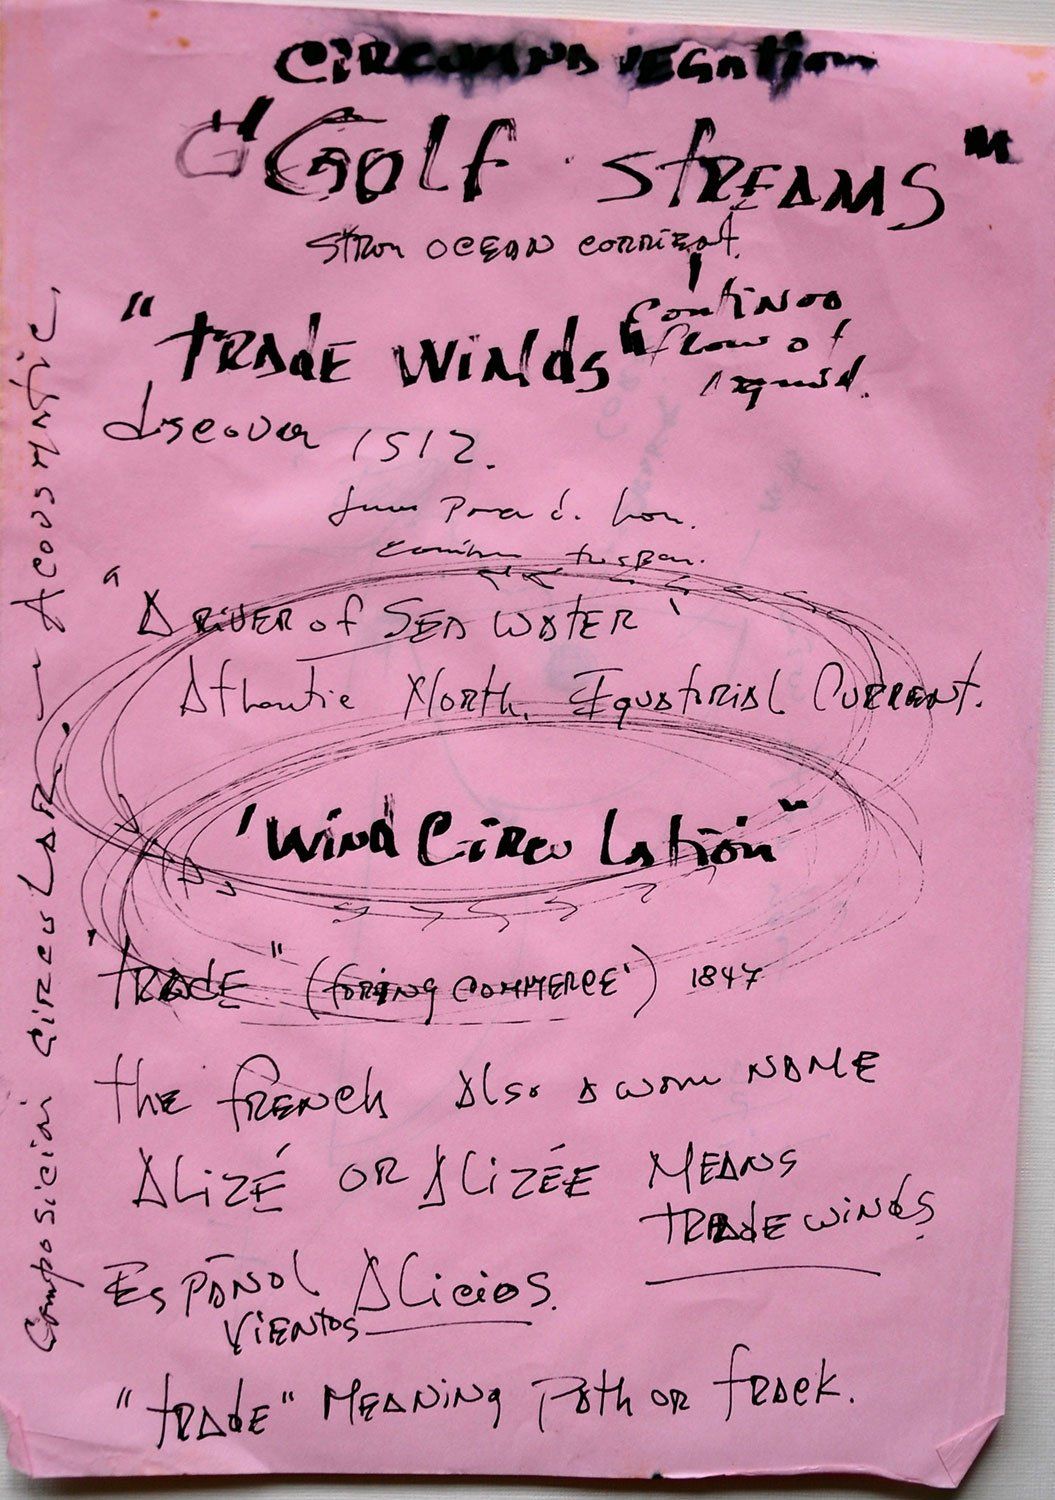 CIRCUMNAVEGATION
"GOLF STREAMS"
STRON OCEAN CORRIENT.
CONTINOO
flow of
"TRADE WINDS"
discover 1512.
"A RIVER of SEA WATER'
Atlantic North. EQUATORIAL CURRENT.
'WIND CIRCU LATION"
"TRADE" (foring COMMERCE') 1847
the FRENCH Also A wom NAME
ALIZÉ OR ALIZÉE MEANS
TRADE WINDS
ESPAÑOL ALICIOS.
VIENTOS
"TRADE" MEANING PATH OR TRACK.
Composicion CIRCULAR. — ACOUSMATIC